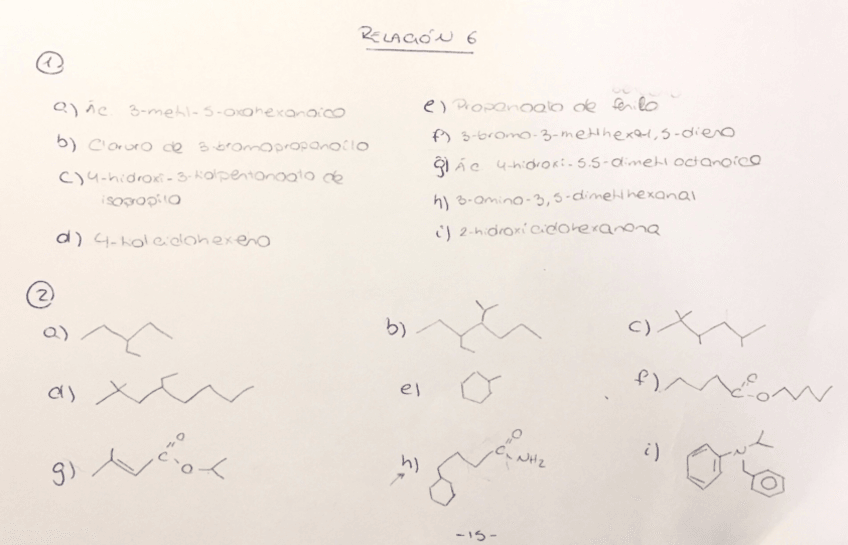 RELACIÓN 6
1
a) Ác 3-metil-5-oxohexanoico
b) Cloruro de 3-bromopropanoilo
c) 4-hidroxi-3-tiolpentanoato de
isopropilo
d) 4-tiolciclohexeno
e) Propanoato de fenilo
f) 3-bromo-3-metilhexa1,5-dieno
g) Ác 4-hidroxi-5.5-dimetiloctanoico
h) 3-amino-3,5-dimetilhexanal
i) 2-hidroxiciclohexanona
2
a)
b)
c)
d)
e)
f) C O O
g) C O O
h) C O NH2
i) N
-15-